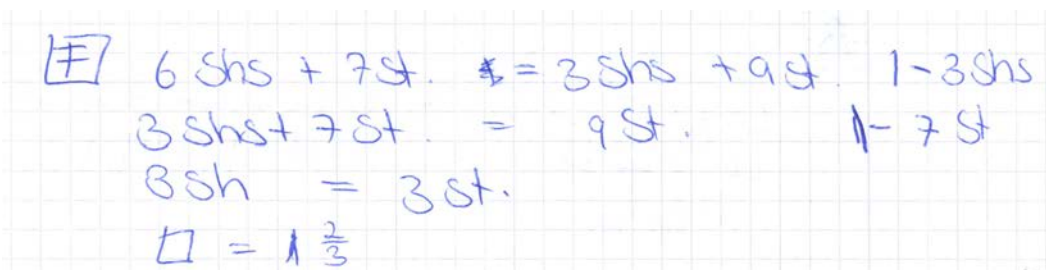 F 6 Shs + 7 St. = 3 Shs + 9 St. | - 3 Shs
3 Shs + 7 St. = 9 St. | - 7 St
3 Sh = 3 St.
□ = 1 2/3